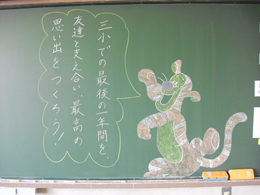 三小での最後の一年間を、
友達と支え合い、最高の
思い出をつくろう!